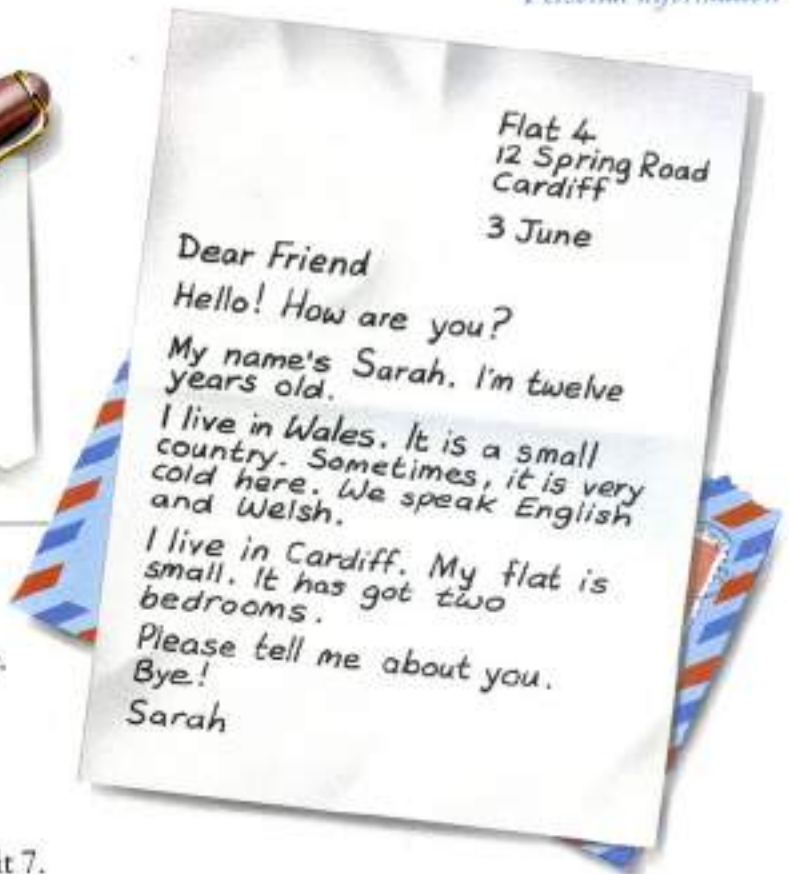 Personal information
Flat 4
12 Spring Road
Cardiff
3 June
Dear Friend
Hello! How are you?
My name's Sarah. I'm twelve
years old.
I live in Wales. It is a small
country. Sometimes, it is very
cold here. We speak English
and Welsh.
I live in Cardiff. My flat is
small. It has got two
bedrooms.
Please tell me about you.
Bye!
Sarah
7.